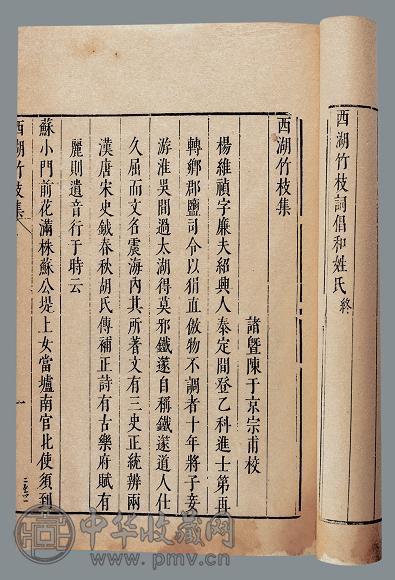 西湖竹枝詞倡和姓氏終
西湖竹枝集
諸暨陳于京宗甫校
楊維禎字廉夫紹興人泰定間登乙科進士第再
轉鄉郡鹽司令以狷直傲物不調者十年將子妻
游淮吳間過太湖得莫邪鐵遂自稱鐵邃道人仕
久屈而文名震海內其所著文有三史正統辨兩
漢唐宋史鉞春秋胡氏傳補正詩有古樂府賦有
麗則遺音行于時云
蘇小門前花滿株蘇公堤上女當壚南官北使須到
西湖竹枝集
一
中华收藏网
www.pmv.cn